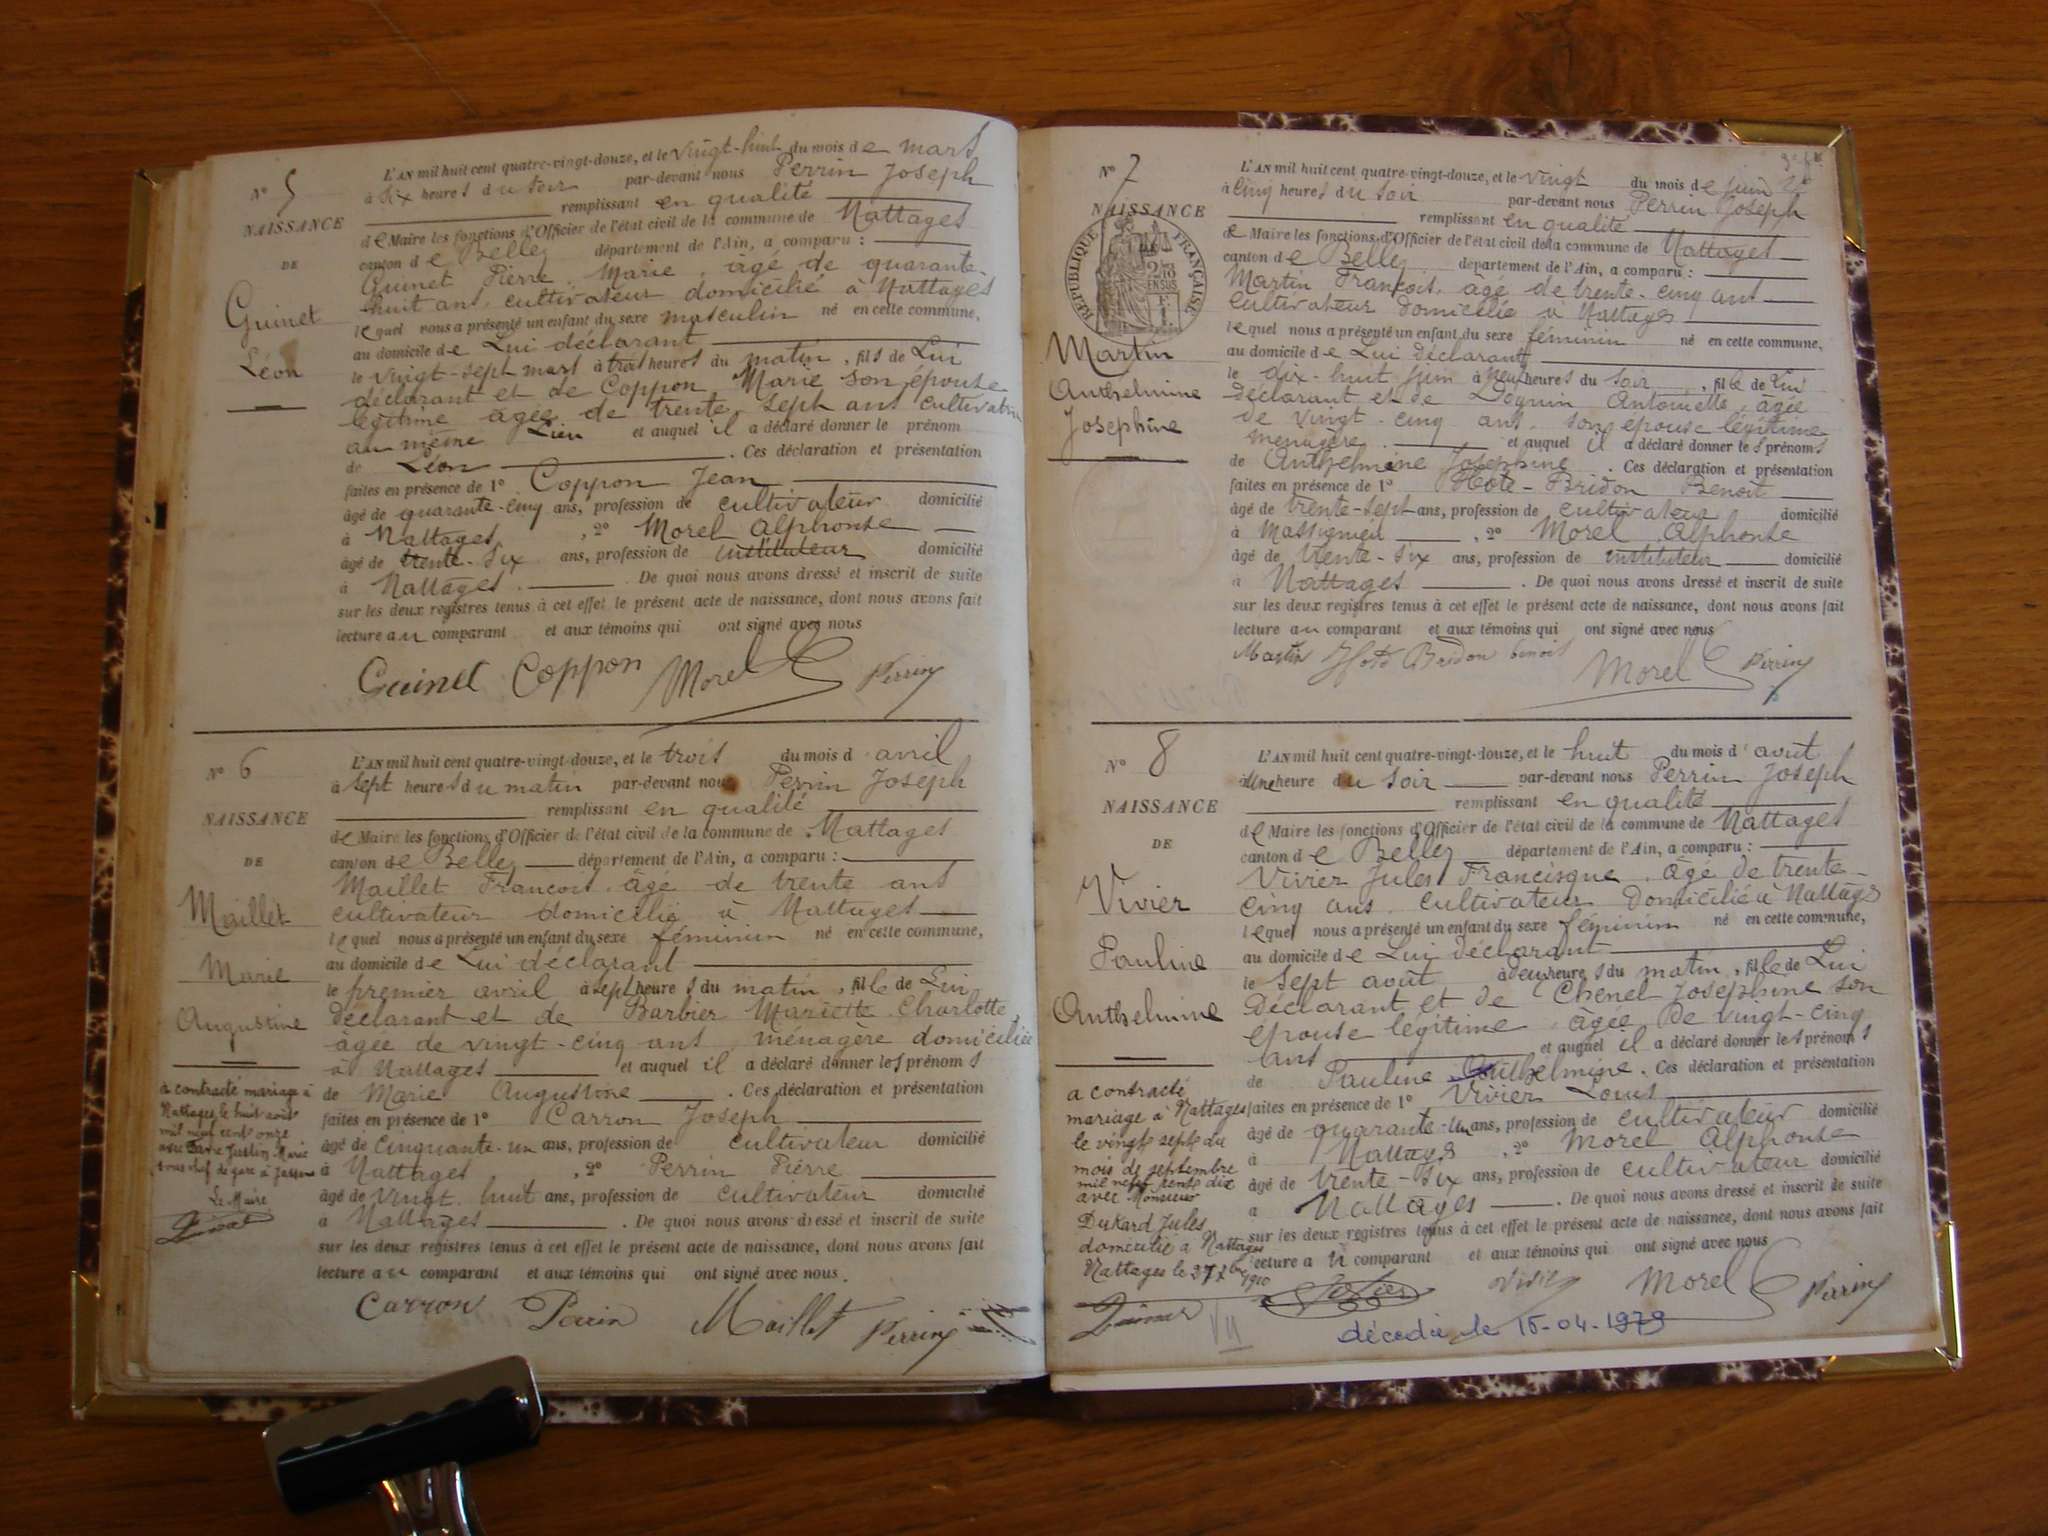 N° 5
NAISSANCE
DE
Guinet
Léon
L'AN mil huit cent quatre-vingt-douze, et le vingt-huit du mois de mars
à six heures du soir par-devant nous Perrin Joseph
remplissant en qualité
de Maire les fonctions d'Officier de l'état civil de la commune de Nattages
canton de Belley département de l'Ain, a comparu :
Guinet Pierre Marie, âgé de quarante-
huit ans, cultivateur domicilié à Nattages
lequel nous a présenté un enfant du sexe masculin né en cette commune,
au domicile de Lui déclarant
le vingt-sept mars à trois heures du matin, fils de Lui
déclarant et de Coppon Marie son épouse
légitime âgée de trente-sept ans cultivatrice
au même Lieu et auquel il a déclaré donner le prénom
de Léon. Ces déclaration et présentation
faites en présence de 1° Coppon Jean
âgé de quarante-cinq ans, profession de cultivateur domicilié
à Nattages, 2° Morel Alphonse
âgé de trente-six ans, profession de instituteur domicilié
à Nattages. De quoi nous avons dressé et inscrit de suite
sur les deux registres tenus à cet effet le présent acte de naissance, dont nous avons fait
lecture au comparant et aux témoins qui ont signé avec nous
Guinet Coppon Morel Perrin
N° 6
NAISSANCE
DE
Maillet
Marie
Augustine
à contracté mariage à
Nattages le huit août
mil neuf cent onze
avec Justin Marie
sous chef de gare à
Le Maire
L'AN mil huit cent quatre-vingt-douze, et le trois du mois d'avril
à sept heures du matin par-devant nous Perrin Joseph
remplissant en qualité
de Maire les fonctions d'Officier de l'état civil de la commune de Nattages
canton de Belley département de l'Ain, a comparu :
Maillet François, âgé de trente ans
cultivateur domicilié à Nattages
lequel nous a présenté un enfant du sexe féminin né en cette commune,
au domicile de Lui déclarant
le premier avril à sept heures du matin, fille de Lui
déclarant et de Barbier Mariette Charlotte,
âgée de vingt-cinq ans, ménagère domiciliée
à Nattages et auquel il a déclaré donner les prénoms
de Marie Augustine. Ces déclaration et présentation
faites en présence de 1° Carron Joseph
âgé de cinquante-un ans, profession de cultivateur domicilié
à Nattages, 2° Perrin Pierre
âgé de vingt-huit ans, profession de cultivateur domicilié
à Nattages. De quoi nous avons dressé et inscrit de suite
sur les deux registres tenus à cet effet le présent acte de naissance, dont nous avons fait
lecture au comparant et aux témoins qui ont signé avec nous.
Carron Perrin Maillet Perrin
N° 7
NAISSANCE
DE
RÉPUBLIQUE FRANÇAISE
Martin
Anthelmine
Joséphine
L'AN mil huit cent quatre-vingt-douze, et le vingt du mois de juin
à cinq heures du soir par-devant nous Perrin Joseph
remplissant en qualité
de Maire les fonctions d'Officier de l'état civil de la commune de Nattages
canton de Belley département de l'Ain, a comparu :
Martin François, âgé de trente-cinq ans
cultivateur domicilié à Nattages
lequel nous a présenté un enfant du sexe féminin né en cette commune,
au domicile de Lui déclarant
le dix-huit juin à neuf heures du soir, fille de Lui
déclarant et de Antoinette, âgée
de vingt-cinq ans, son épouse légitime
ménagère. et auquel il a déclaré donner les prénoms
de Anthelmine Joséphine. Ces déclaration et présentation
faites en présence de 1° Hote-Bridon Benoit
âgé de trente-sept ans, profession de cultivateur domicilié
à Massignieu, 2° Morel Alphonse
âgé de trente-six ans, profession de instituteur domicilié
à Nattages. De quoi nous avons dressé et inscrit de suite
sur les deux registres tenus à cet effet le présent acte de naissance, dont nous avons fait
lecture au comparant et aux témoins qui ont signé avec nous
Martin Hote Bridon benoit Morel Perrin
N° 8
NAISSANCE
DE
Vivier
Pauline
Anthelmine
a contracté
mariage à Nattages
le vingt sept du
mois de septembre
mil neuf cent dix
avec Monsieur
Dukard Jules
domicilié à Nattages
Nattages le 27 7bre 1910
L'AN mil huit cent quatre-vingt-douze, et le huit du mois d'août
à une heure du soir par-devant nous Perrin Joseph
remplissant en qualité
de Maire les fonctions d'Officier de l'état civil de la commune de Nattages
canton de Belley département de l'Ain, a comparu :
Vivier Jules Francisque, âgé de trente-
cinq ans, cultivateur domicilié à Nattages
lequel nous a présenté un enfant du sexe féminin né en cette commune,
au domicile de Lui déclarant
le sept août à heures du matin, fille de Lui
Déclarant et de Chenel Joséphine son
épouse légitime, âgée de vingt-cinq
ans et auquel il a déclaré donner les prénoms
de Pauline Anthelmine. Ces déclaration et présentation
faites en présence de 1° Vivier Louis
âgé de quarante-un ans, profession de cultivateur domicilié
à Nattages, 2° Morel Alphonse
âgé de trente-six ans, profession de cultivateur domicilié
à Nattages. De quoi nous avons dressé et inscrit de suite
sur les deux registres tenus à cet effet le présent acte de naissance, dont nous avons fait
lecture au comparant et aux témoins qui ont signé avec nous
Vivier Morel Perrin
décédée le 15-04-1979